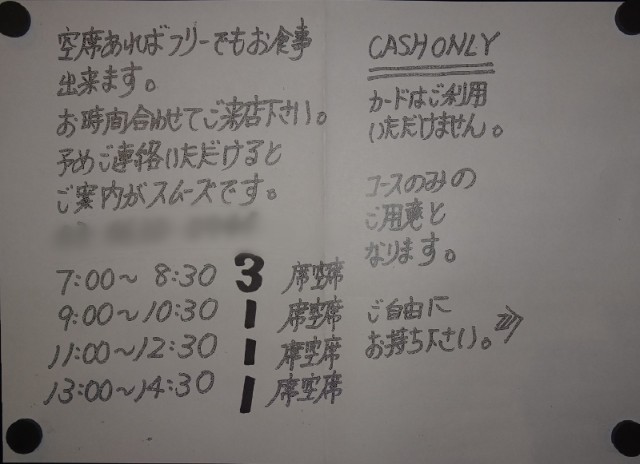 空席あればフリーでもお食事
出来ます。
お時間合わせてご来店下さい。
予めご連絡いただけると
ご案内がスムーズです。
7:00～ 8:30 3 席空席
9:00～10:30 1 席空席
11:00～12:30 1 席空席
13:00～14:30 1 席空席
CASH ONLY
カードはご利用
いただけません。
コースのみの
ご用意と
なります。
ご自由に
お持ち下さい。